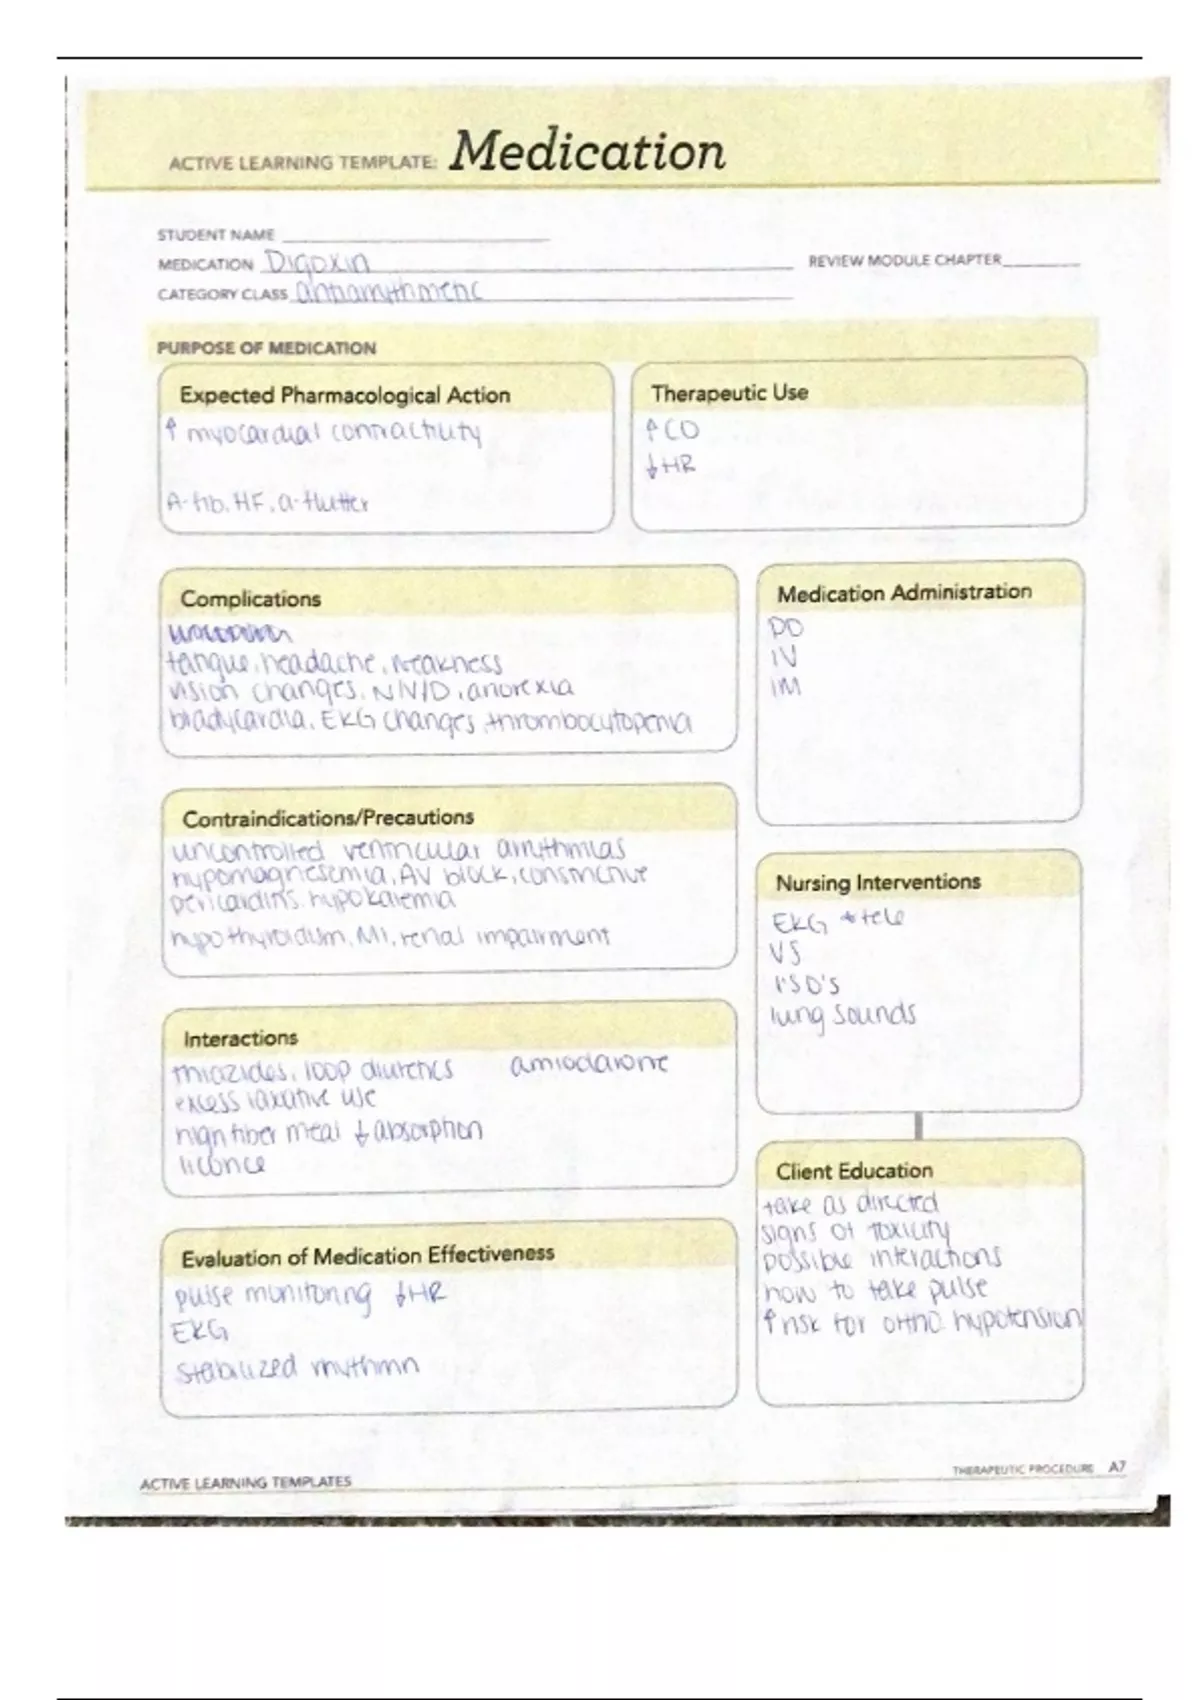 ACTIVE LEARNING TEMPLATE: Medication
STUDENT NAME
MEDICATION Digoxin
REVIEW MODULE CHAPTER
CATEGORY CLASS antiarrythmetic
PURPOSE OF MEDICATION
Expected Pharmacological Action
↑ myocardial contractility
A-fib, HF, a-flutter
Therapeutic Use
↑ CO
↓ HR
Complications
fatigue, headache, weakness
vision changes, N/V/D, anorexia
bradycardia, EKG changes, thrombocytopenia
Medication Administration
PO
IV
IM
Contraindications/Precautions
uncontrolled ventricular arrythmias
hypomagnesemia, AV block, constrictive
pericarditis, hypokalemia
hypothyroidism, MI, renal impairment
Nursing Interventions
EKG + tele
VS
I'S O'S
lung sounds
Interactions
thiazides, loop diuretics amiodarone
excess laxative use
high fiber meal ↓ absorption
licorice
Client Education
take as directed
signs of toxicity
possible interactions
how to take pulse
↑ risk for ortho. hypotension
Evaluation of Medication Effectiveness
pulse monitoring ↓ HR
EKG
stabilized rhythmn
ACTIVE LEARNING TEMPLATES
THERAPEUTIC PROCEDURE A7